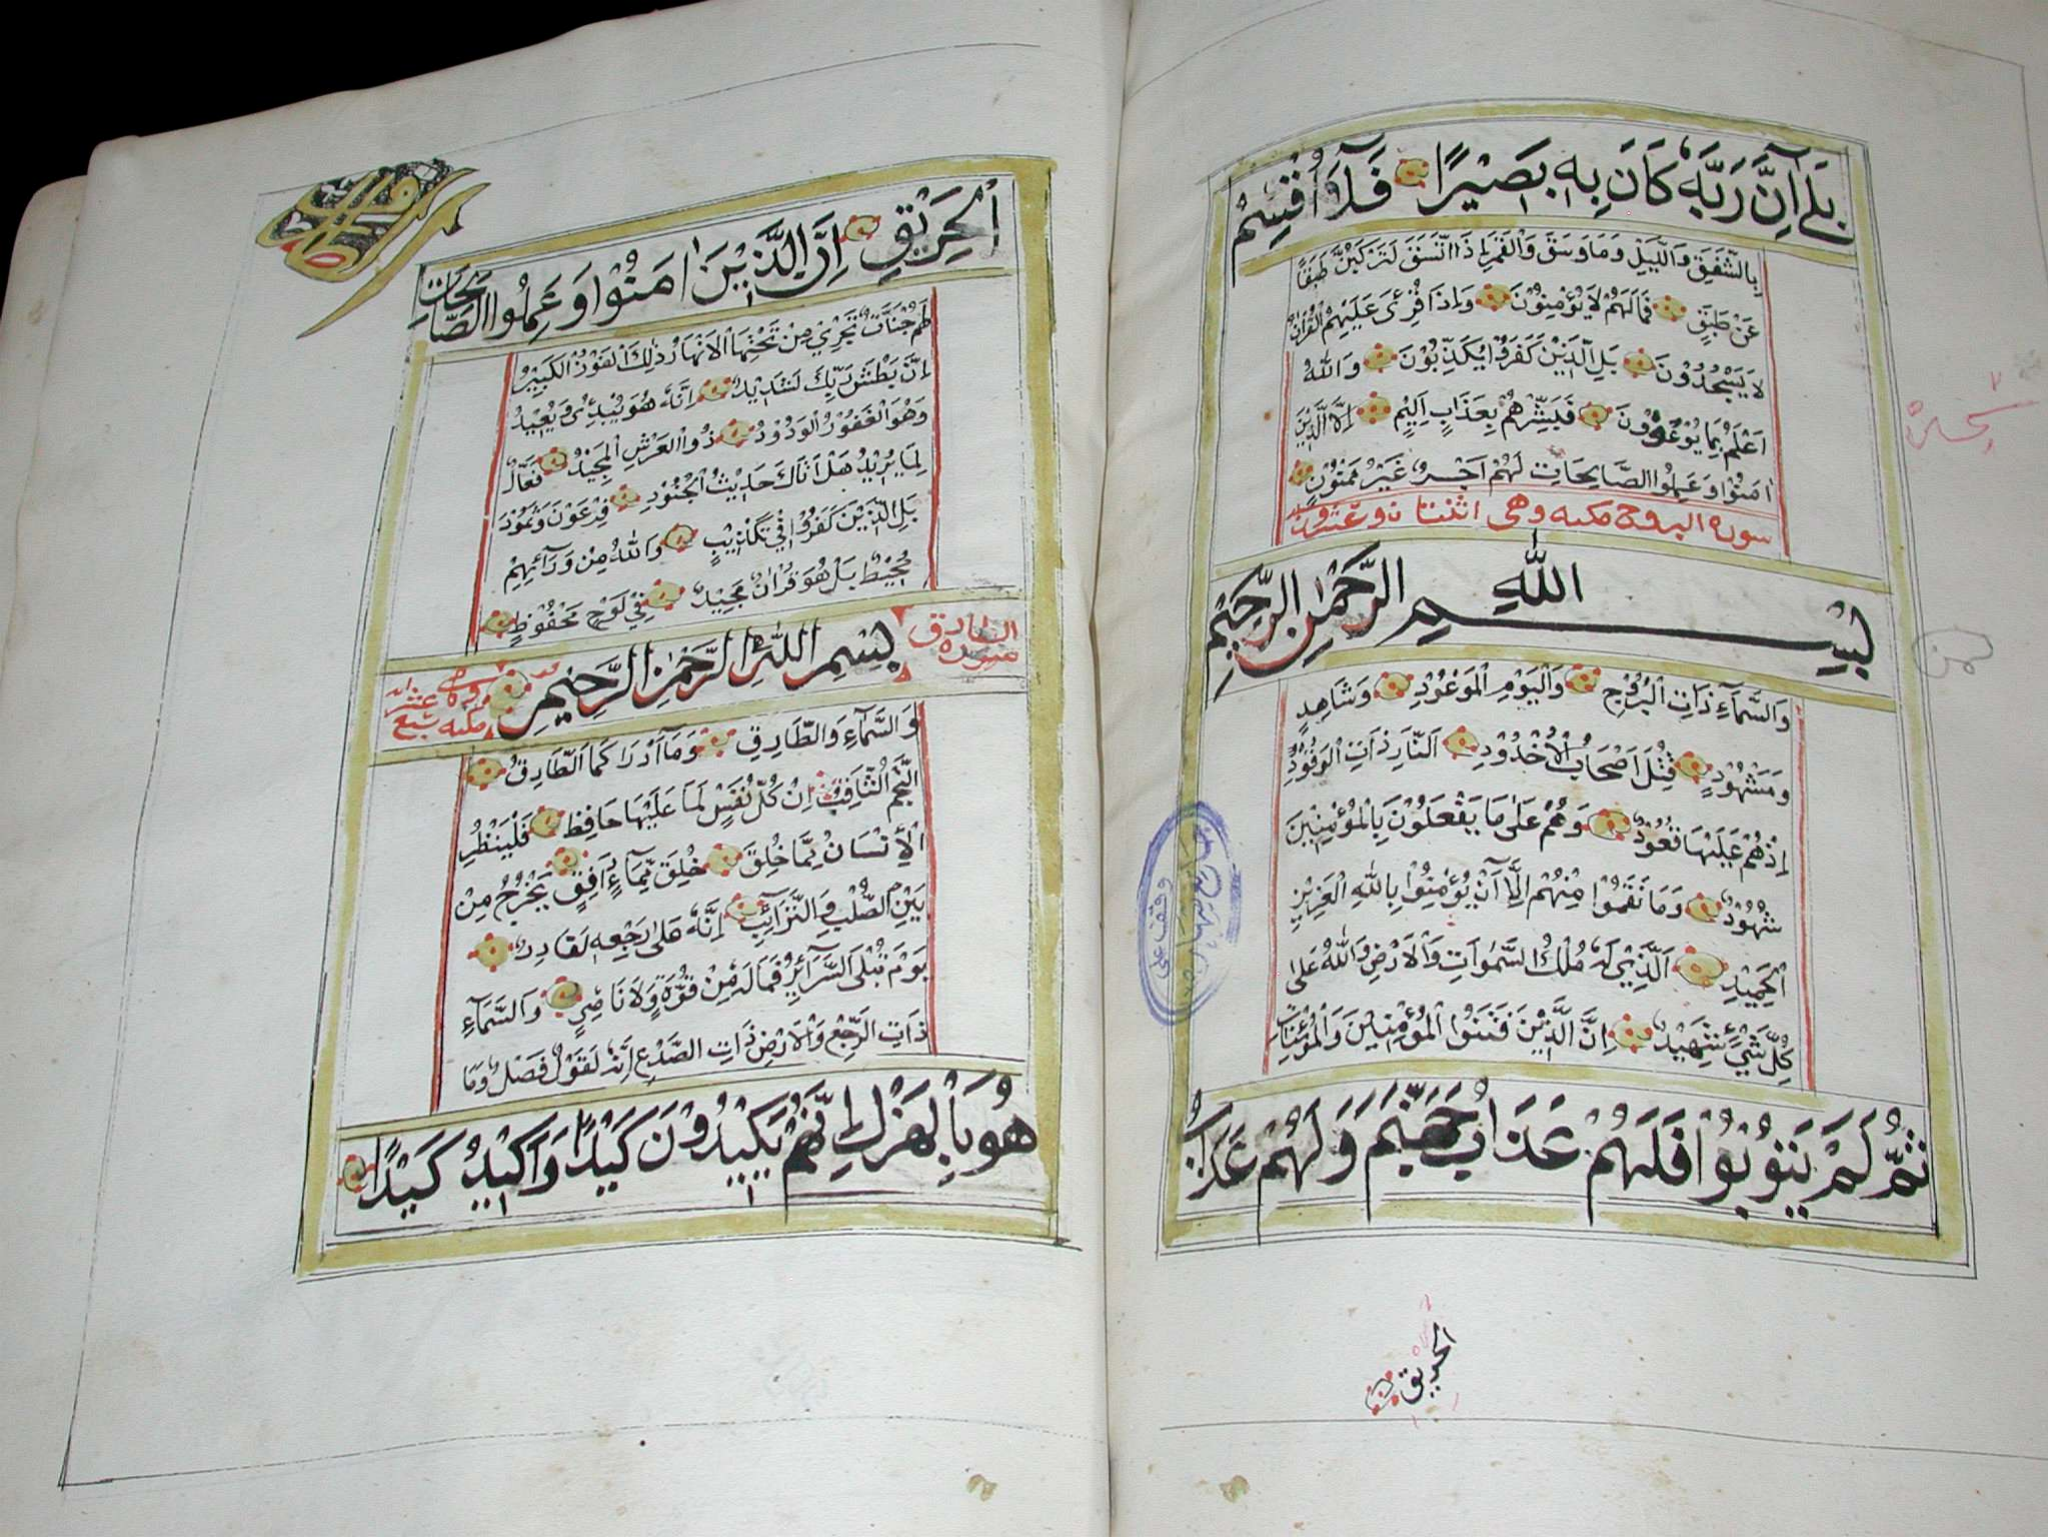 بَلٰى اِنَّ رَبَّهُ كَانَ بِهٖ بَصِيْرًا فَلَآ اُقْسِمُ
بِالشَّفَقِ وَالَّيْلِ وَمَا وَسَقَ وَالْقَمَرِ اِذَا اتَّسَقَ لَتَرْكَبُنَّ طَبَقًا
عَنْ طَبَقٍ فَمَا لَهُمْ لَا يُؤْمِنُوْنَ وَاِذَا قُرِئَ عَلَيْهِمُ الْقُرْاٰنُ
لَا يَسْجُدُوْنَ بَلِ الَّذِيْنَ كَفَرُوْا يُكَذِّبُوْنَ وَاللّٰهُ
اَعْلَمُ بِمَا يُوْعُوْنَ فَبَشِّرْهُمْ بِعَذَابٍ اَلِيْمٍ اِلَّا الَّذِيْنَ
اٰمَنُوْا وَعَمِلُوا الصَّالِحَاتِ لَهُمْ اَجْرٌ غَيْرُ مَمْنُوْنٍ
سورة البروج مكيه وهى اثنتان وعشرون
بِسْمِ اللّٰهِ الرَّحْمٰنِ الرَّحِيْمِ
وَالسَّمَآءِ ذَاتِ الْبُرُوْجِ وَالْيَوْمِ الْمَوْعُوْدِ وَشَاهِدٍ
وَمَشْهُوْدٍ قُتِلَ اَصْحَابُ الْاُخْدُوْدِ اَلنَّارِ ذَاتِ الْوَقُوْدِ
اِذْ هُمْ عَلَيْهَا قُعُوْدٌ وَهُمْ عَلٰى مَا يَفْعَلُوْنَ بِالْمُؤْمِنِيْنَ
شُهُوْدٌ وَمَا نَقَمُوْا مِنْهُمْ اِلَّآ اَنْ يُؤْمِنُوْا بِاللّٰهِ الْعَزِيْزِ
الْحَمِيْدِ اَلَّذِيْ لَهُ مُلْكُ السَّمٰوَاتِ وَالْاَرْضِ وَاللّٰهُ عَلٰى
كُلِّ شَيْءٍ شَهِيْدٌ اِنَّ الَّذِيْنَ فَتَنُوا الْمُؤْمِنِيْنَ وَالْمُؤْمِنَاتِ
ثُمَّ لَمْ يَتُوْبُوْا فَلَهُمْ عَذَابُ جَهَنَّمَ وَلَهُمْ عَذَابُ
الحريق
وقف على
الْحَرِيْقِ اِنَّ الَّذِيْنَ اٰمَنُوْا وَعَمِلُوا الصَّالِحَاتِ
لَهُمْ جَنَّاتٌ تَجْرِيْ مِنْ تَحْتِهَا الْاَنْهَارُ ذٰلِكَ الْفَوْزُ الْكَبِيْرُ
اِنَّ بَطْشَ رَبِّكَ لَشَدِيْدٌ اِنَّهُ هُوَ يُبْدِئُ وَيُعِيْدُ
وَهُوَ الْغَفُوْرُ الْوَدُوْدُ ذُو الْعَرْشِ الْمَجِيْدُ فَعَّالٌ
لِمَا يُرِيْدُ هَلْ اَتَاكَ حَدِيْثُ الْجُنُوْدِ فِرْعَوْنَ وَثَمُوْدَ
بَلِ الَّذِيْنَ كَفَرُوْا فِيْ تَكْذِيْبٍ وَاللّٰهُ مِنْ وَرَآئِهِمْ
مُحِيْطٌ بَلْ هُوَ قُرْاٰنٌ مَجِيْدٌ فِيْ لَوْحٍ مَحْفُوْظٍ
سورة الطارق
بِسْمِ اللّٰهِ الرَّحْمٰنِ الرَّحِيْمِ
مكيه سبع عشر
وَالسَّمَآءِ وَالطَّارِقِ وَمَآ اَدْرَاكَ مَا الطَّارِقُ
النَّجْمُ الثَّاقِبُ اِنْ كُلُّ نَفْسٍ لَمَّا عَلَيْهَا حَافِظٌ فَلْيَنْظُرِ
الْاِنْسَانُ مِمَّا خُلِقَ خُلِقَ مِنْ مَآءٍ دَافِقٍ يَخْرُجُ مِنْ
بَيْنِ الصُّلْبِ وَالتَّرَآئِبِ اِنَّهُ عَلٰى رَجْعِهٖ لَقَادِرٌ
يَوْمَ تُبْلَى السَّرَآئِرُ فَمَا لَهُ مِنْ قُوَّةٍ وَلَا نَاصِرٍ وَالسَّمَآءِ
ذَاتِ الرَّجْعِ وَالْاَرْضِ ذَاتِ الصَّدْعِ اِنَّهُ لَقَوْلٌ فَصْلٌ وَمَا
هُوَ بِالْهَزْلِ اِنَّهُمْ يَكِيْدُوْنَ كَيْدًا وَاَكِيْدُ كَيْدًا